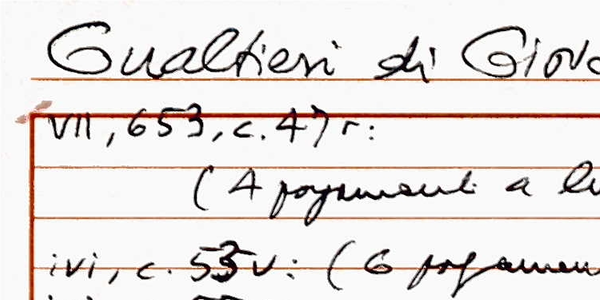 Gualtieri di Giova
VII, 653, c. 47 r:
(4 pagamenti a lu
ivi, c. 53v: (6 pagamen